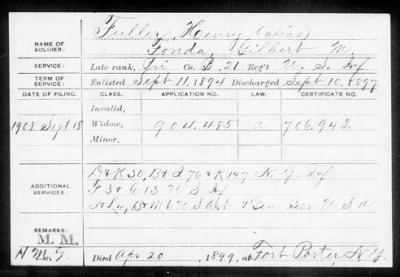 Fuller, Henry (alias)
NAME OF SOLDIER: Fonda, Gilbert M.
SERVICE: Late rank, Pri Co. B, 21 Reg't U. S. Inf
TERM OF SERVICE: Enlisted Sept 11, 1894 Discharged Sept 10, 1897
DATE OF FILING. CLASS. APPLICATION NO. CERTIFICATE NO.
Invalid,
1908 Sept 18 Widow, 904,485 706,943.
Minor,
K 30, & K 147 N. Y. Inf
ADDITIONAL SERVICES: F 3 & G 13 U S Inf
U S Art & Gen Ser U S A
REMARKS:
M. M.
Died Apr 20, 1899, at Fort Porter, N.Y.